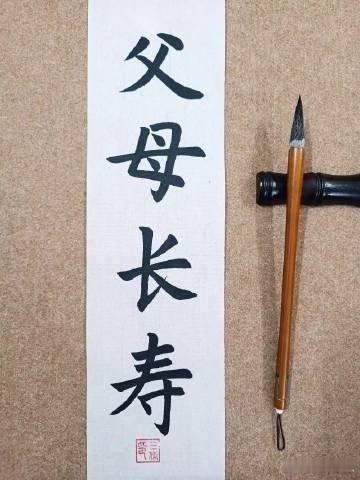 父母长寿